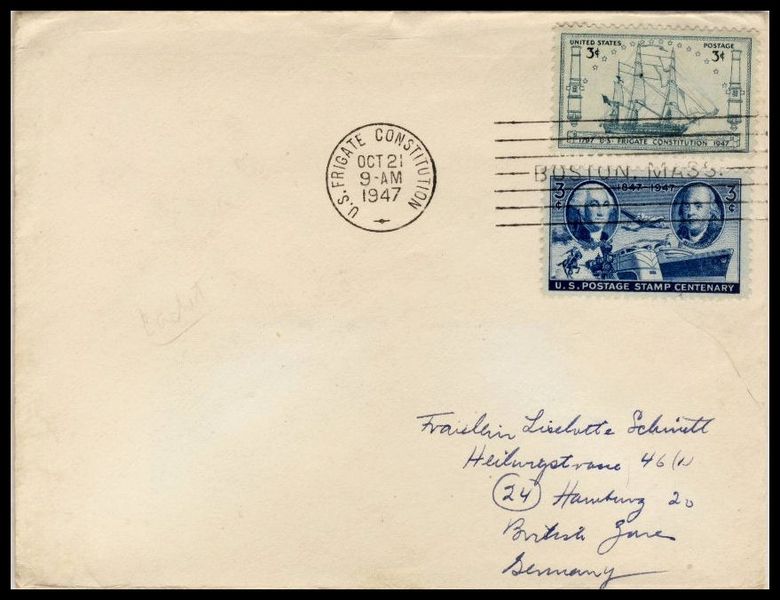 UNITED STATES POSTAGE
3¢ 3¢
1797 U.S. FRIGATE CONSTITUTION 1947
U.S. FRIGATE CONSTITUTION
OCT 21
9-AM
1947
BOSTON, MASS.
3¢ 1847-1947 3¢
U.S. POSTAGE STAMP CENTENARY
Fraülein Liselotte Schmidt
46
24 Hamburg 20
British Zone
Germany